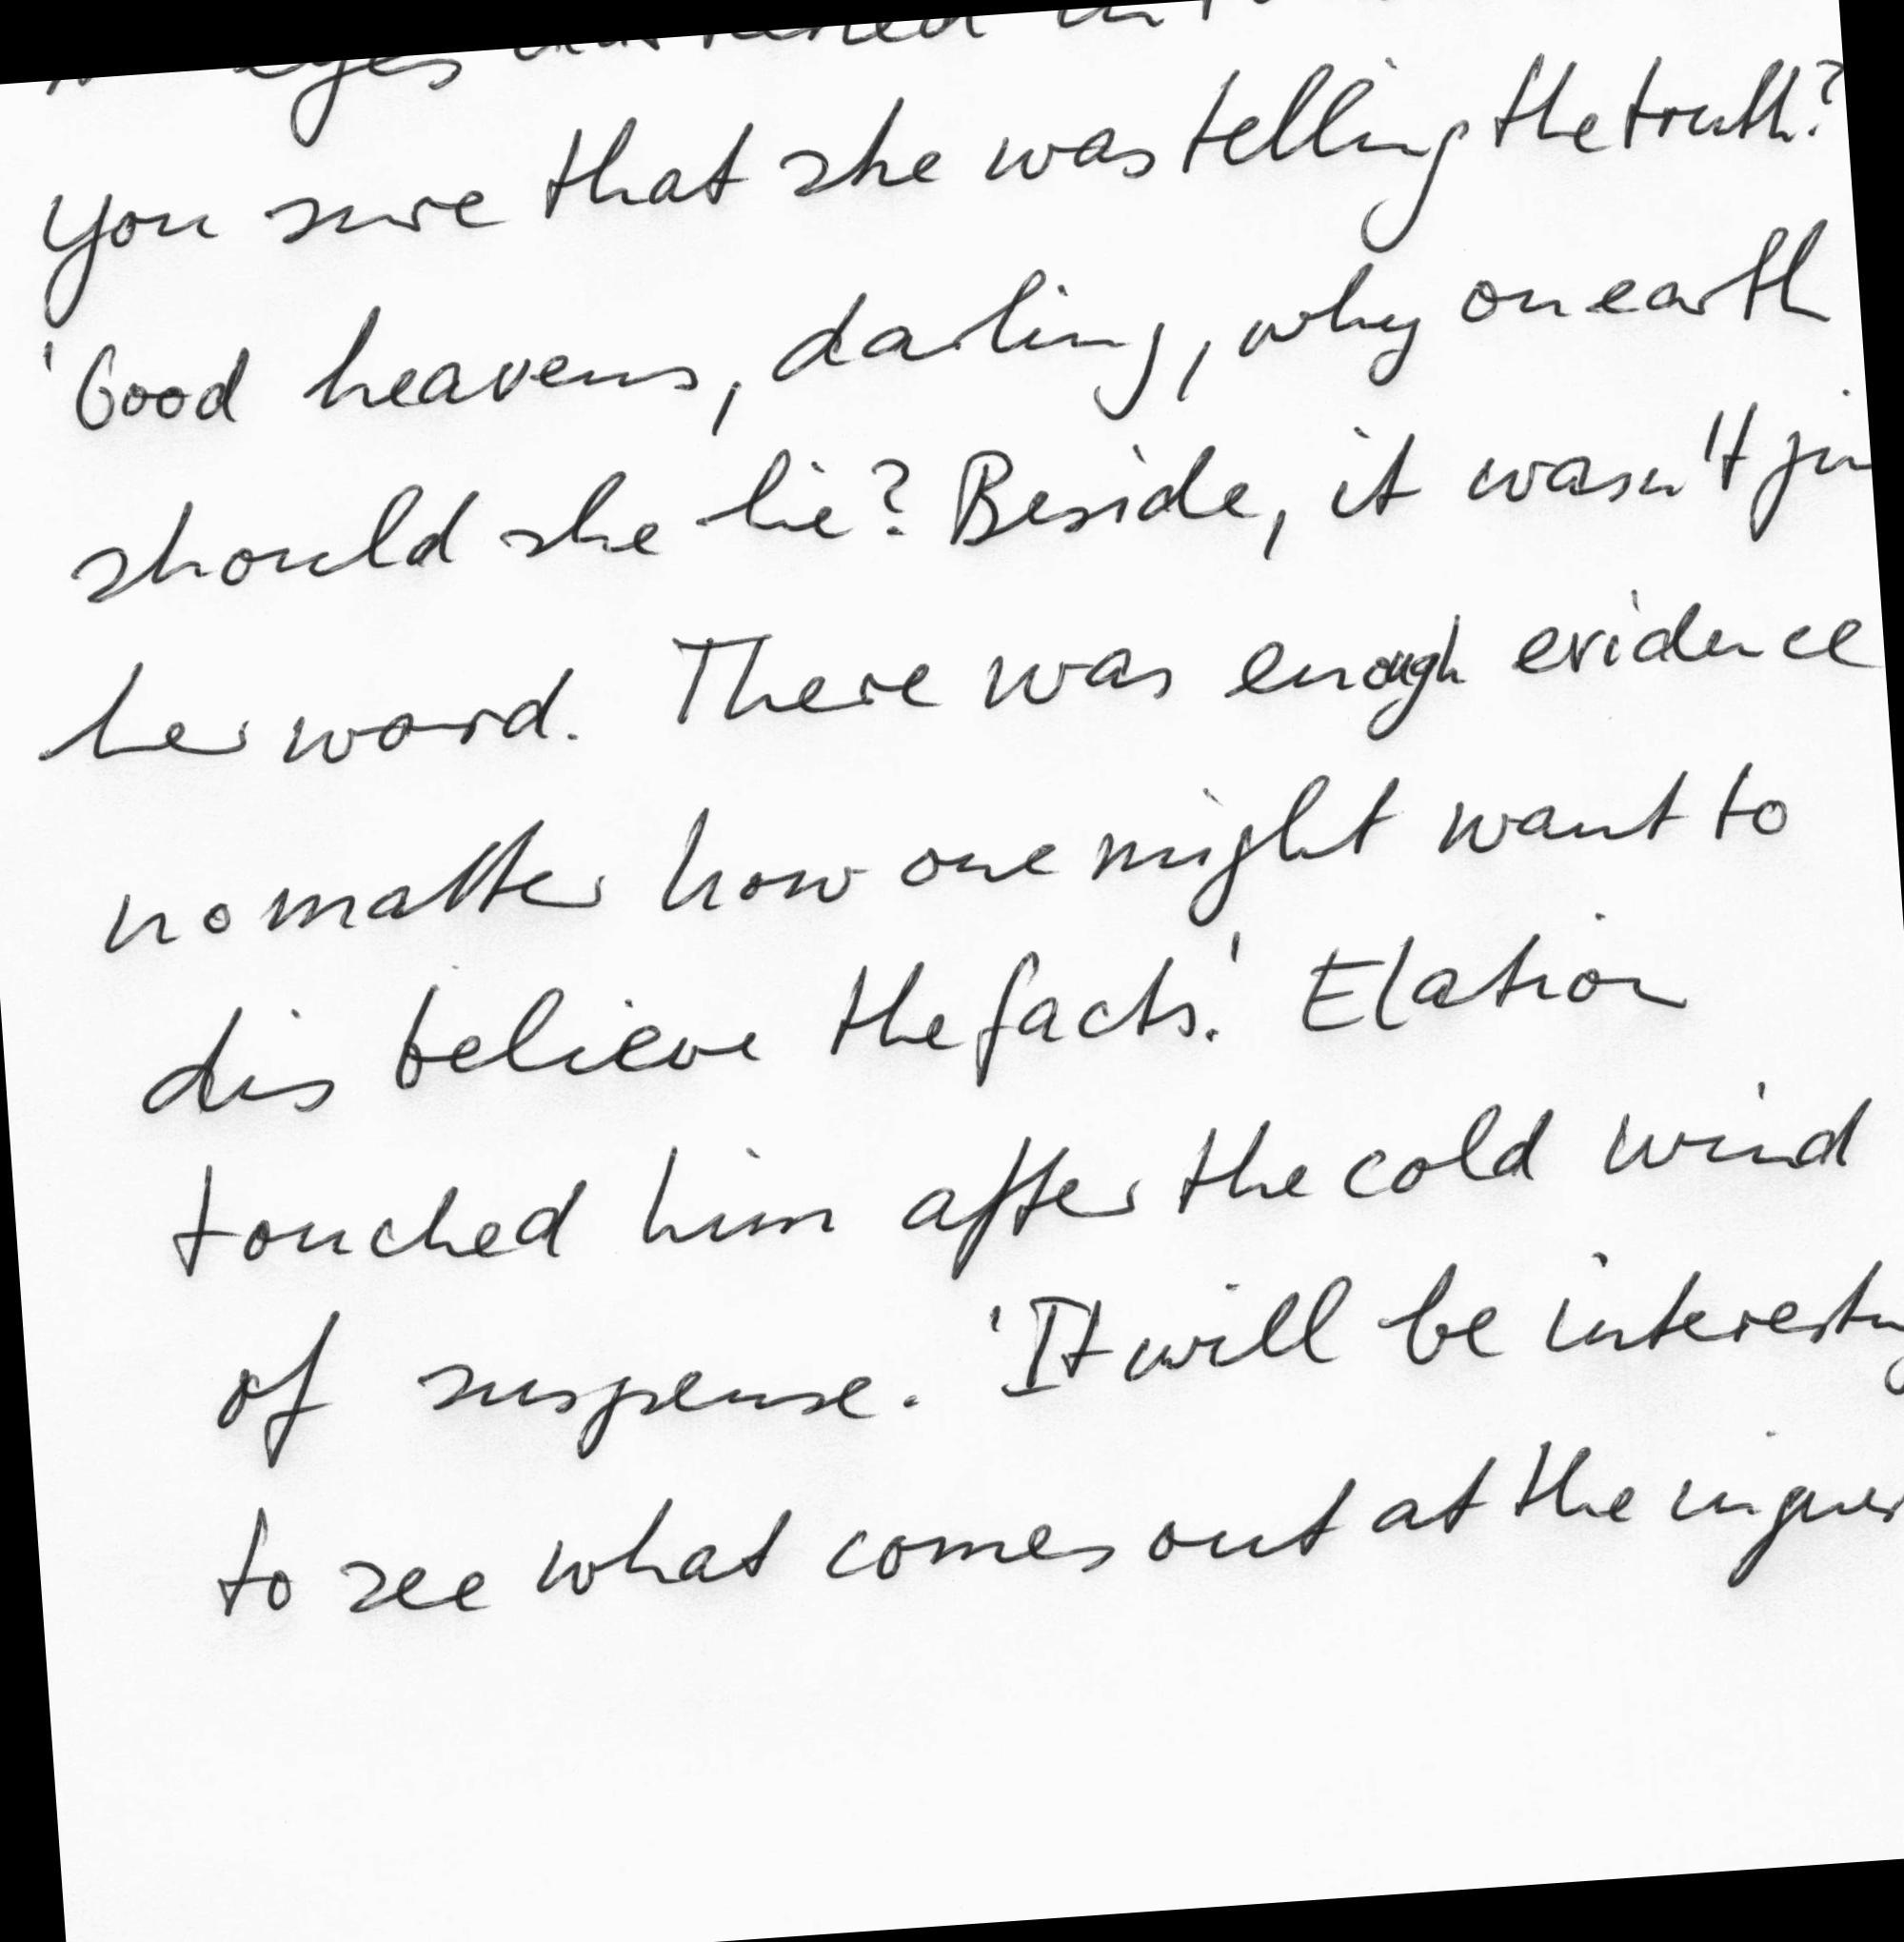 eyes darkened
you sure that she was telling the truth?
'Good heavens, darling, why on earth
should she lie? Beside, it wasn't
her word. There was enough evidence
no matter how one might want to
dis believe the facts.' Elation
touched him after the cold wind
of suspense. 'It will be
to see what comes out at the